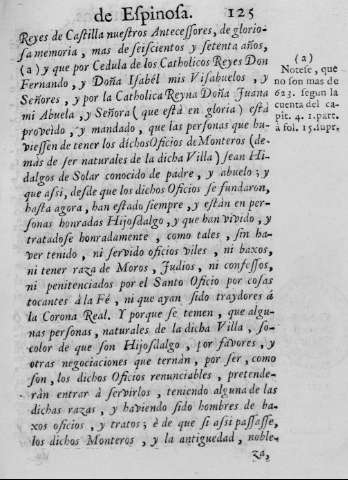 de Espinosa. 125
Reyes de Castilla nuestros Antecessores, de glorio-
sa memoria, mas de seiscientos y setenta años,
(a) y que por Cedula de los Catholicos Reyes Don
Fernando, y Doña Isabèl mis Visabuelos, y
Señores, y por la Catholica Reyna Doña Juana
mi Abuela, y Señora (que està en gloria) està
proveido, y mandado, que las personas que hu-
viessen de tener los dichos Oficios de Monteros (de-
màs de ser naturales de la dicha Villa) sean Hi-
dalgos de Solar conocido de padre, y abuelo; y
que assi, desde que los dichos Oficios se fundaron,
hasta agora, han estado siempre, y estàn en per-
sonas honradas Hijosdalgo, y que han vivido, y
tratadose honradamente, como tales, sin ha-
ver tenido, ni servido oficios viles, ni baxos,
ni tener raza de Moros, Judios, ni confessos,
ni penitenciados por el Santo Oficio por cosas
tocantes à la Fé, ni que ayan sido traydores à
la Corona Real. Y porque se temen, que algu-
nas personas, naturales de la dicha Villa, so-
color de que son Hijosdalgo, por favores, y
otras negociaciones que ternàn, por ser, como
son, los dichos Oficios renunciables, pretende-
ràn entrar à servirlos, teniendo alguna de las
dichas razas, y haviendo sido hombres de ba-
xos oficios, y tratos; è de que si assi passasse,
los dichos Monteros, y la antiguedad, noble-
za,
(a)
Notese, que
no son mas de
623. segun la
cuenta del ca-
pit. 4. 1. part.
à fol. 15. supr.